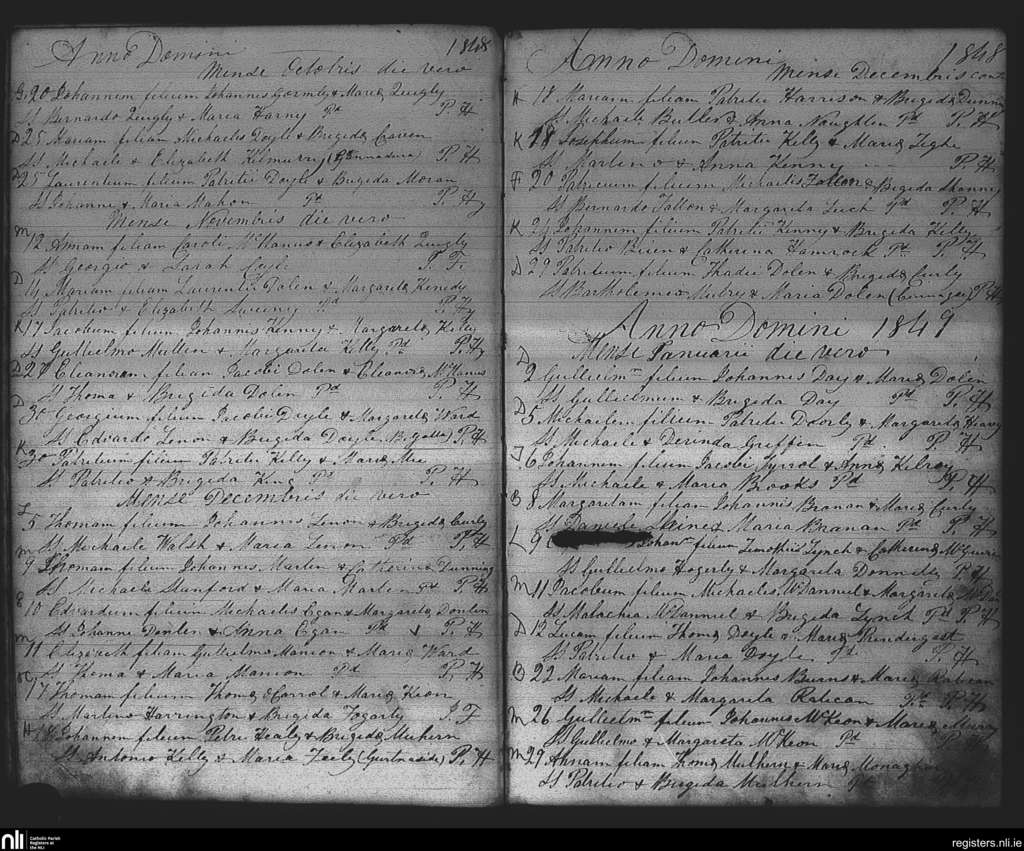 Anno Domini 1848
Mense Octobris die vero
G 20 Johannem filium Johannis Gormly & Maria Quigly
Ss Bernardo Quigly & Maria Harny Pd P. H
D 25 Mariam filiam Michaelis Doyle & Brigida Craven
Ss Michaele & Elizabeth Kilmurry P. H
D 25 Laurentium filium Patritii Doyle & Brigida Moran
Ss Johanne & Maria Mahon Pd P. H
Mense Novembris die vero
M 12 Annam filiam Caroli McManus & Elizabeth Quigly
Ss Georgio & Sarah T. F.
D 14 Mariam filiam Laurentii Dolen & Margarita Kenedy
Ss Patritio & Elizabeth Sweeny Pd P. H
K 17 Jacobum filium Johannis Kenny & Margarita Kelly
Ss Gullielmo Mullen & Margarita Kelly Pd P. H
D 27 Eleanoram filiam Jacobi Dolen & Eleanora McManus
Ss Thoma & Brigida Dolen Pd P. H
D 30 Georgium filium Jacobi Doyle & Margarita Ward
Ss Edvardo Lenon & Brigida Doyle P. H
K 30 Patritium filium Patritii Kelly & Maria
Ss Patritio & Brigida King Pd P. H
Mense Decembris die vero
L 5 Thomam filium Johannis Lenon & Brigida Curly
Ss Michaele Walsh & Maria Lenon Pd P. H
M 9 Thomam filium Johannis Martin & Catherina Dunning
Ss Michaele Stanford & Maria Martin Pd P. H
E 10 Edvardum filium Michaelis Egan & Margarita Donlen
Ss Johanne Donlen & Anna Egan Pd P. H
M 11 Elizabeth filiam Gullielmo Manion & Maria Ward
Ss Thoma & Maria Manion Pd P. H
OC 17 Thomam filium Thoma OCarrol & Maria Keon
Ss Martino Harrington & Brigida Fogarty T. F
H Johannem filium Petri Healy & Brigida Mulhern
Ss Antonio Kelly & Maria Feely P. H
Anno Domini 1848
Mense Decembris cont
H 18 Mariam filiam Patritii Harrison & Brigida Dunning
Ss Michaele Butler & Anna Naughten Pd P. H
K 18 Josephum filium Patritii Kelly & Maria Tighe
Ss Martino & Anna Kenny P. H
F 20 Patricium filium Michaelis Fallon & Brigida
Ss Bernardo Fallon & Margarita Pd P. H
K 21 Johannem filium Patritii Kenny & Brigida Kelly
Ss Patritio Brien & Catherina Hamrock Pd P. H
D 29 Patritium filium Thadei Dolen & Brigida Curly
Ss Bartholemeo Mulry & Maria Dolen P. H
Anno Domini 1849
Mense Januarii die vero
D 2 Gullielmm filium Johannis Day & Maria Dolen
Ss Gullielmum & Brigida Day Pd P. H
D 5 Michaelem filium Patritii Doorly & Margarita
Ss Michaele & Derinda Griffen Pd P. H
T 6 Johannem filium Jacobi Tyrrol & Anna Kilroy
Ss Michaele & Maria Brooks Pd P. H
B 8 Margaritam filiam Johannis Branan & Maria Curly
Ss Daniele & Maria Branan Pd P. H
L 9 Johanm filium Timothii Lynch & Catherina
Ss Gullielmo Hogerty & Margarita Donnelly P. H
M 11 Jacobum filium Michaelis McDannel & Margarita
Ss Malachia McDannel & Brigida Lynch Pd P. H
D 12 Lucam filium Thoma Doyle & Maria Prendergast
Ss Patritio & Maria Doyle Pd P. H
B 22 Mariam filiam Johannis Burns & Maria Ratican
Ss Michaele & Margarita Ratican Pd P. H
M 26 Gullielmm filium Johannis McKeon & Maria Murry
Ss Gullielmo & Margareta McKeon Pd P.
M 29 Annam filiam Thoma Mulhern & Maria Monaghan
Ss Patritio & Brigida Mulhern Pd
nli
Catholic Parish
Registers at
the NLI
registers.nli.ie